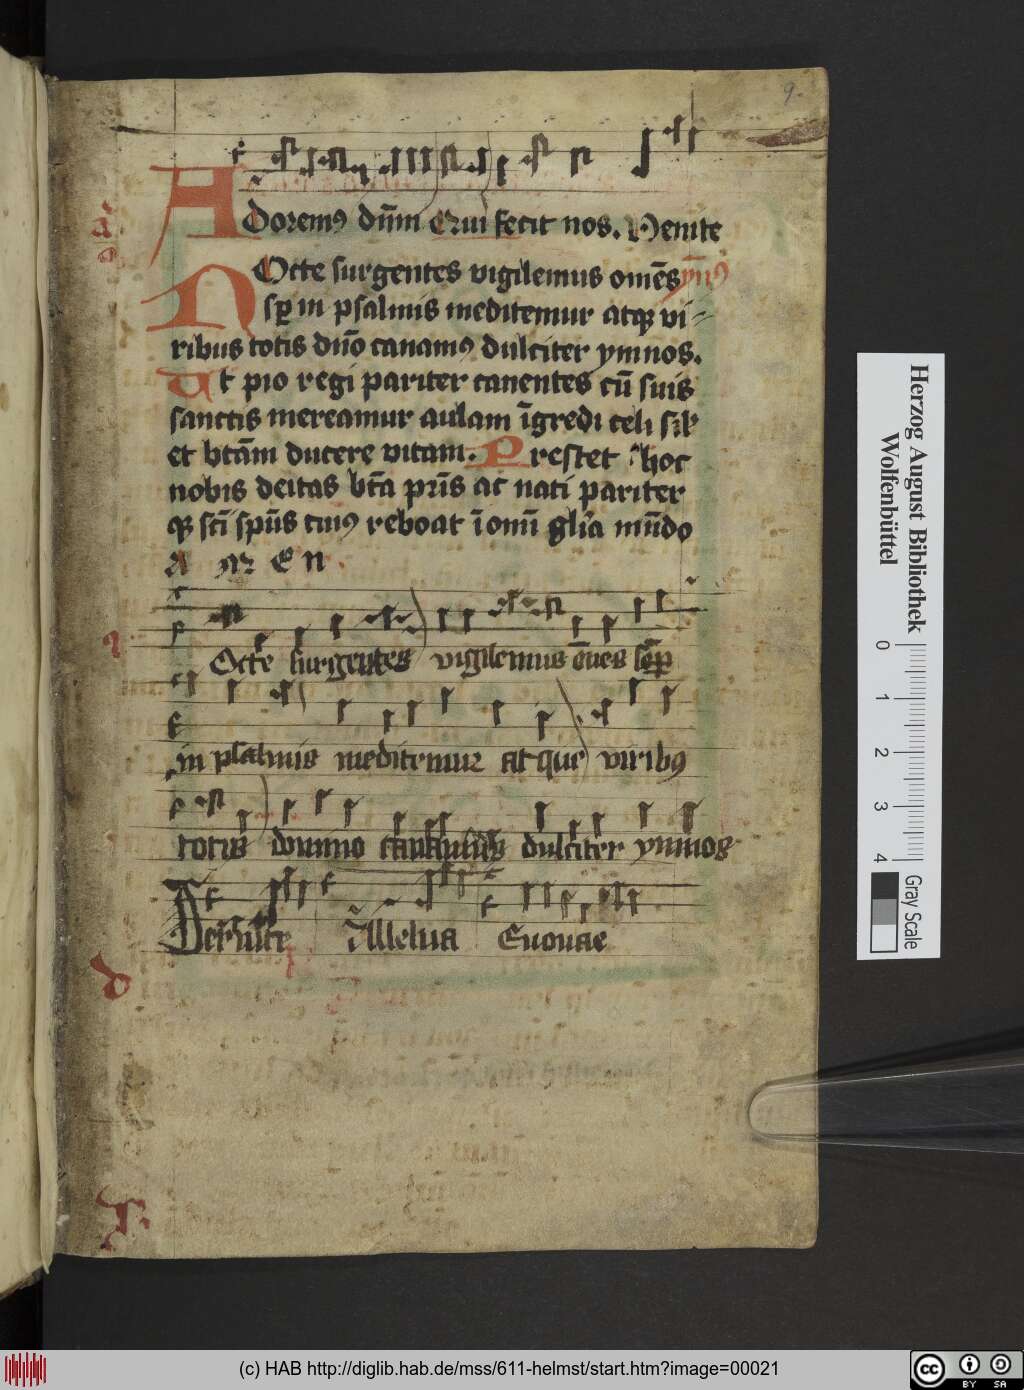 9.
Adorem9 dn̄m Qui fecit nos. Uenite
Nocte surgentes vigilemus omēs ymn9
sꝑ in psalmis meditemur atqꝫ vi-
ribus totis dn̄o canam9 dulciter ymnos.
Ut pio regi pariter canentes cū suis
sanctis mereamur aulam īgredi celi sil'
et btām ducere vitam. Prestet hoc
nobis deitas btā pr̄is ac nati pariter
qꝫ scī sp̄us cui9 reboat ī om̄i glīa mūdo
A M E N
Nocte surgentes vigilemus om̄es semꝑ
in psalmis meditemur atque virib9
totis domino dulciter ymnos
Seruite Alleluia Euouae
a
d
Herzog August Bibliothek
Wolfenbüttel
0 1 2 3 4
Gray Scale
(c) HAB http://diglib.hab.de/mss/611-helmst/start.htm?image=00021
cc BY SA